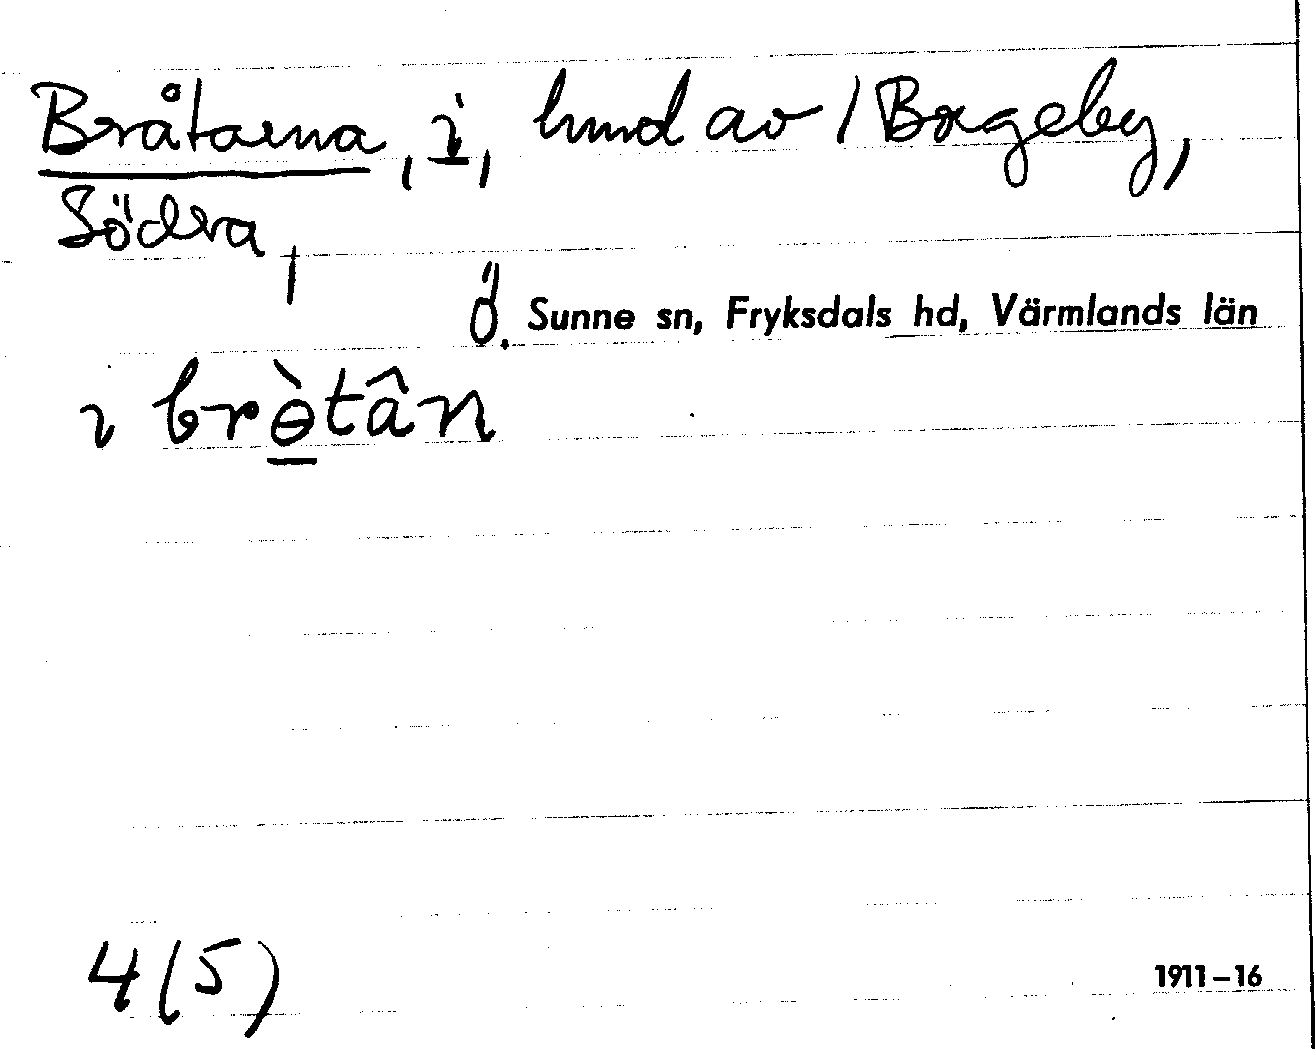 Bråtarna, i, hmd av / Borgeby,
Södra,
ö. Sunne sn, Fryksdals hd, Värmlands län
ı brɵ̀tân
4(5)
1911–16